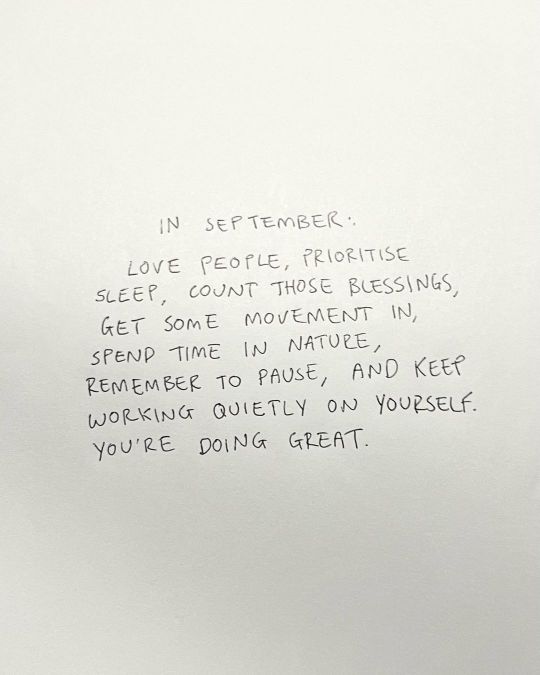 IN SEPTEMBER:
LOVE PEOPLE, PRIORITISE
SLEEP, COUNT THOSE BLESSINGS,
GET SOME MOVEMENT IN,
SPEND TIME IN NATURE,
REMEMBER TO PAUSE, AND KEEP
WORKING QUIETLY ON YOURSELF.
YOU'RE DOING GREAT.